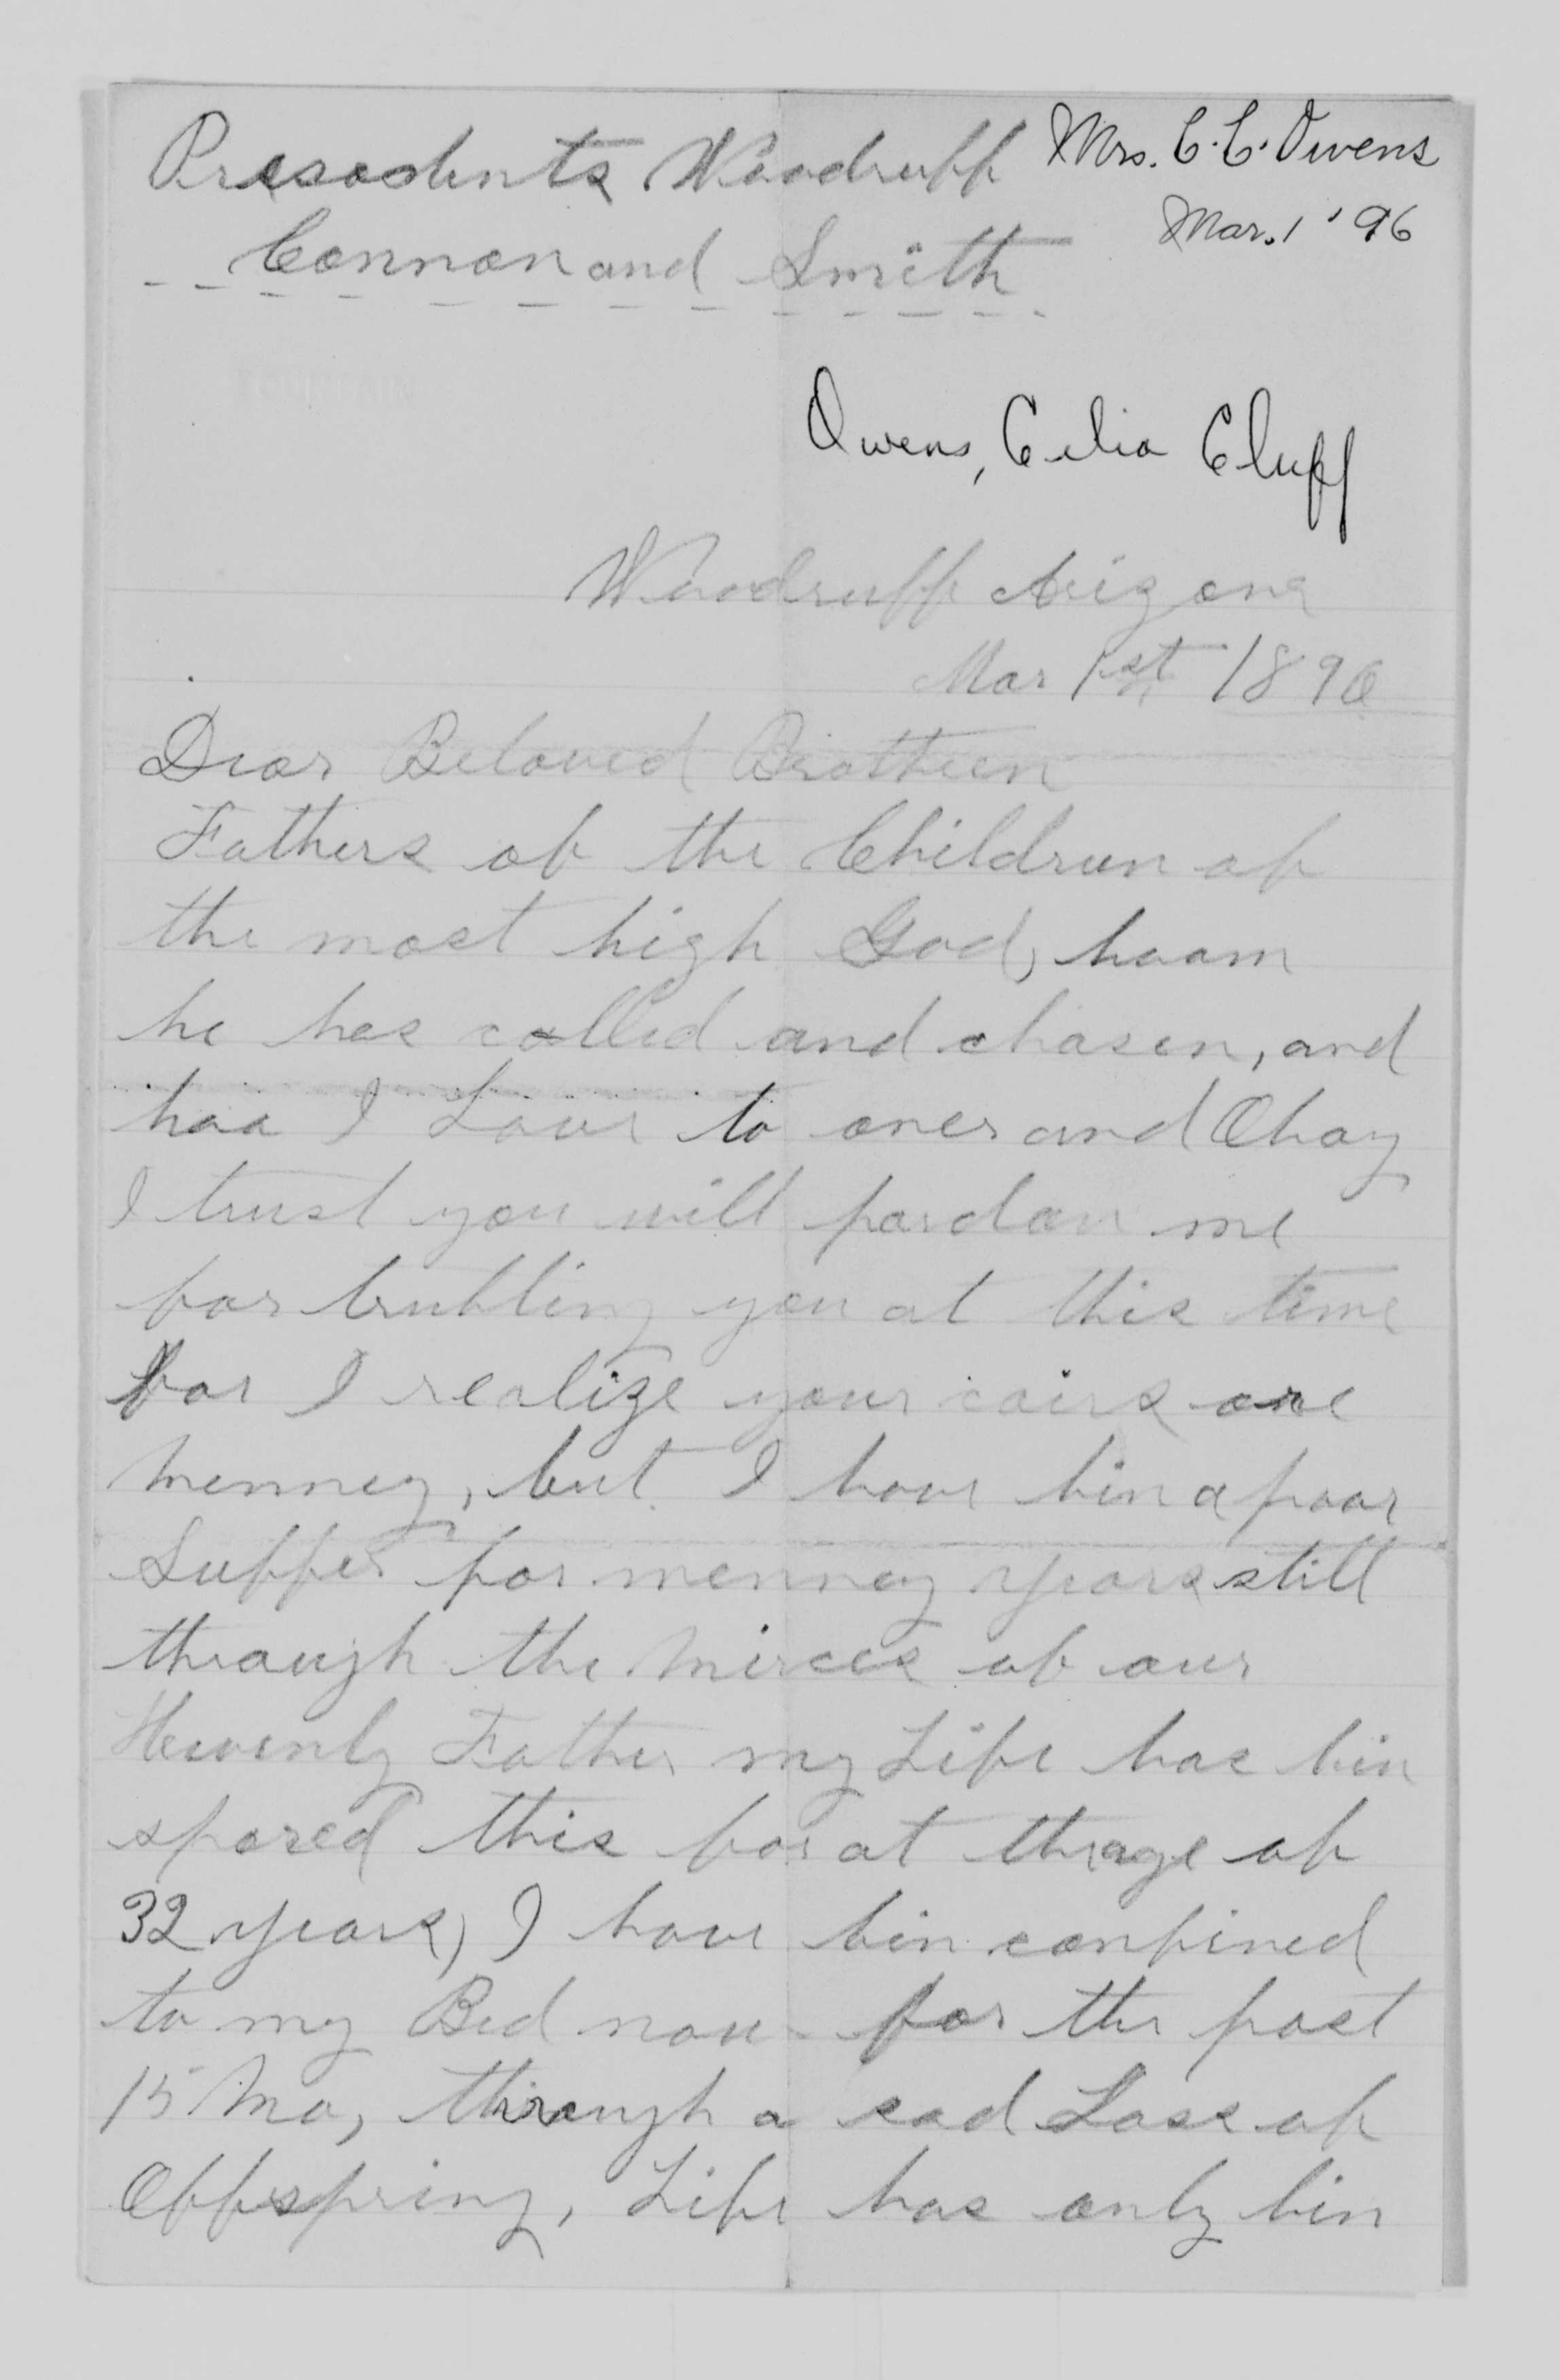 Presodents Woodruff Mrs. C. C. Owens
Connon and Smith Mar. 1 '96
Owens, Celia Cluff
Woodruff Arizona
Mar 1st 1896
Dear Beloved Brotheren
Fathers of the Children of
the most high God, hoom
he has called and chosen, and
hoo I Love to oner and Obay
I trust you will pardon me
for trubling you at this time
for I realize your cairs are
menney, but I have bin a poor
Suffer for menney years still
through the mirces of our
Hevenly Father my Life has bin
spared this for at the age of
32 years, I have bin confined
to my Bed now for the past
15 Mo, through a sad Loss of
Offspring, Life has only bin